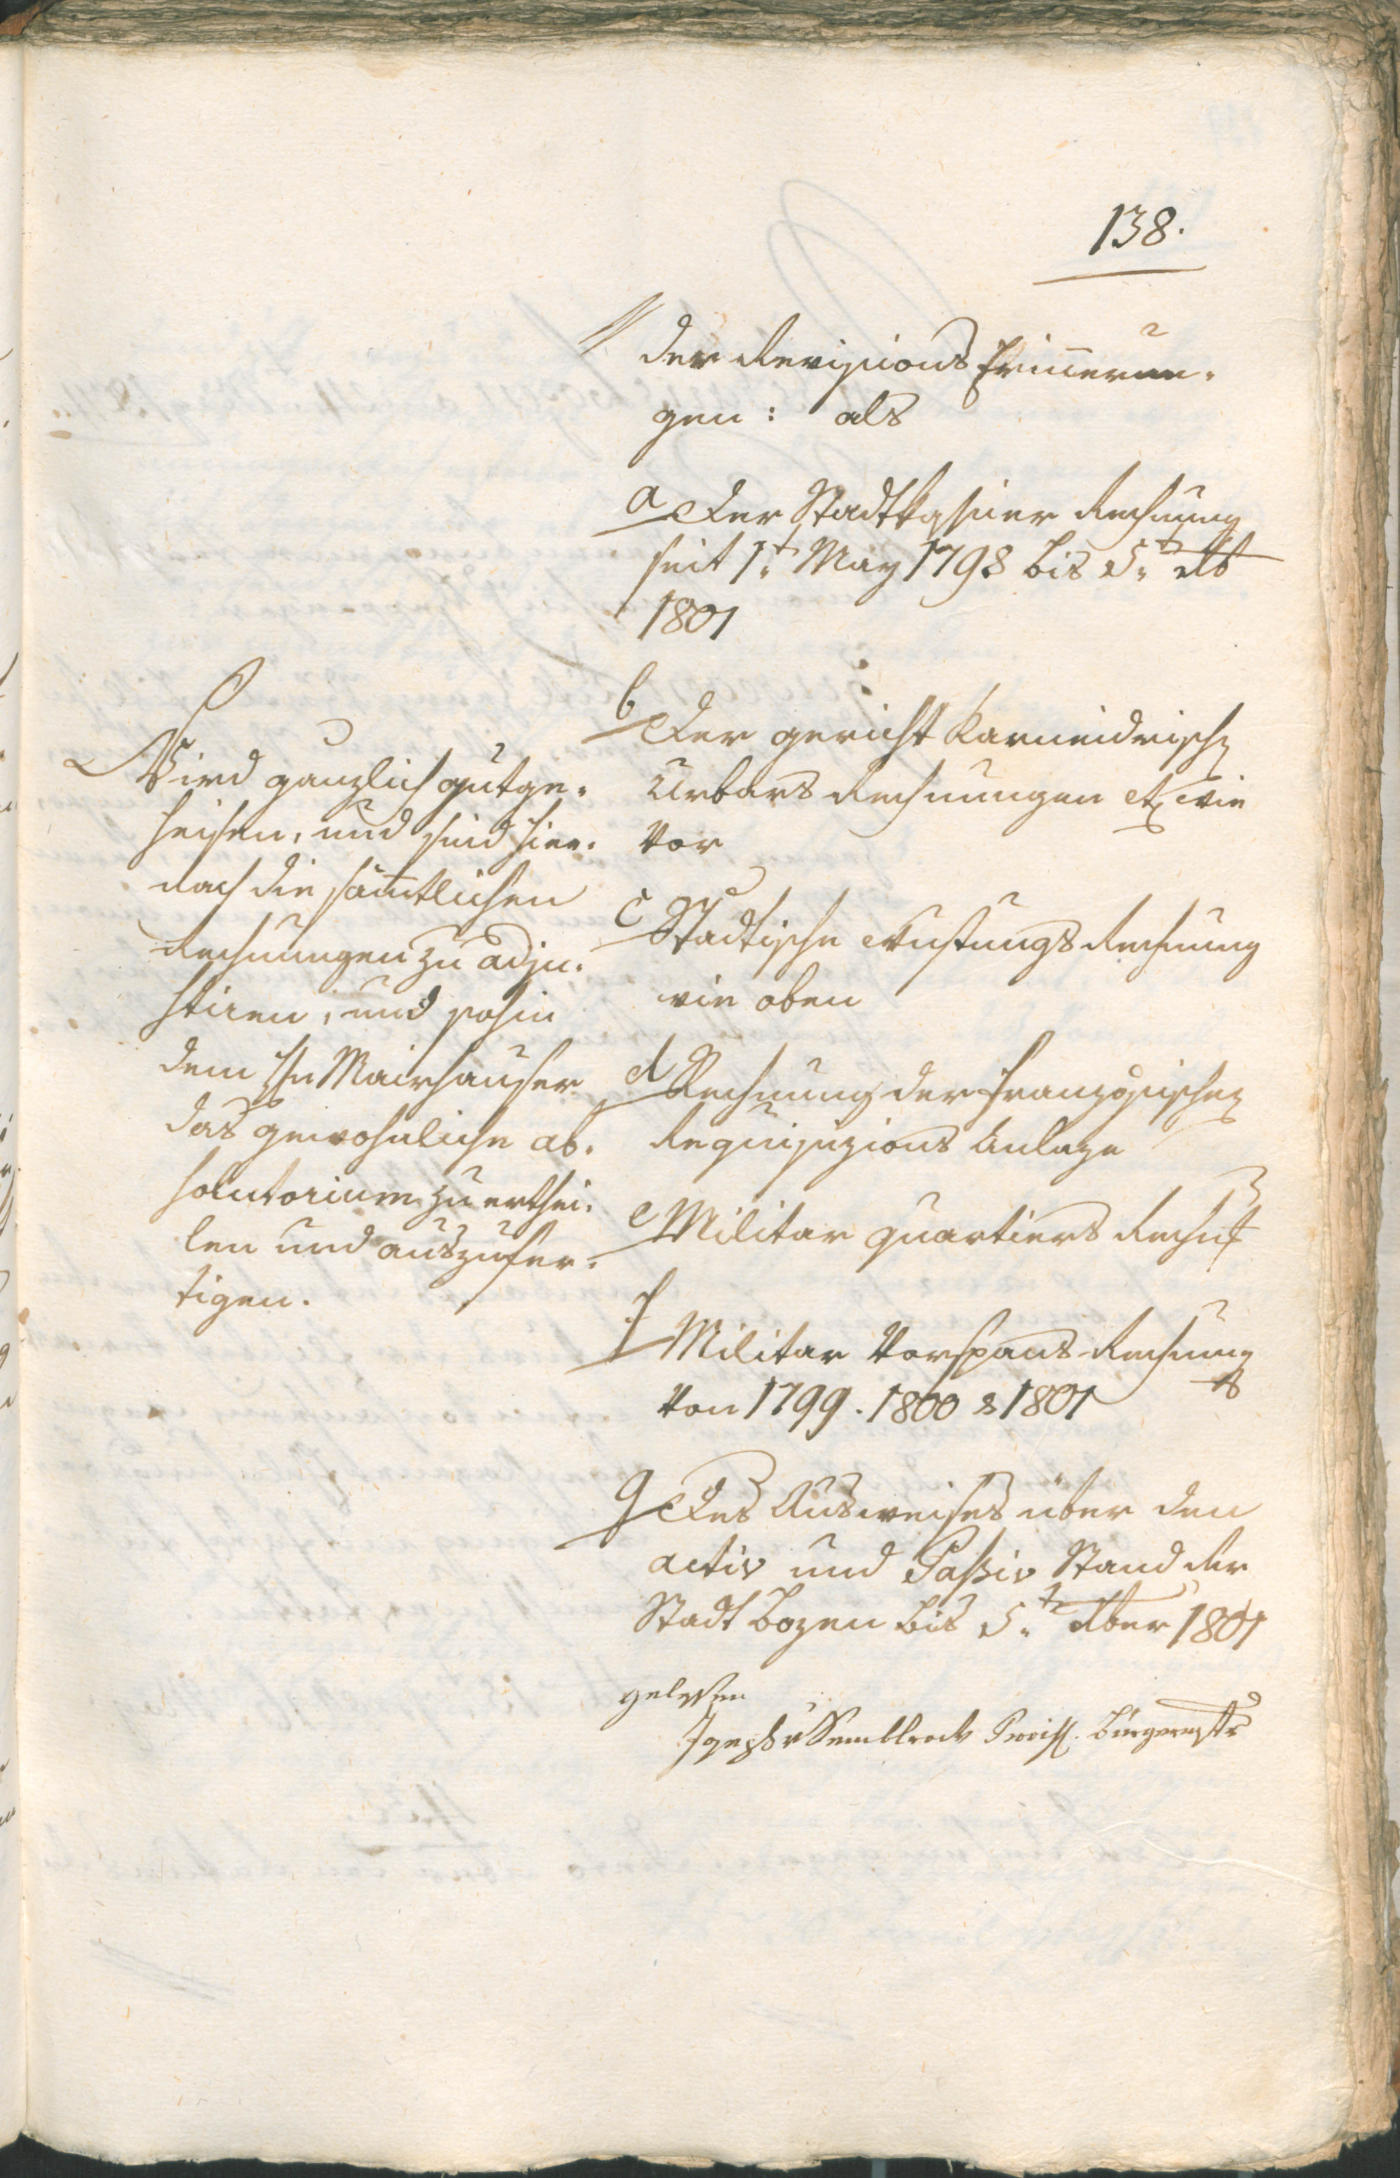 138.
der Revisions Erinnerun-
gen: als
a der Stadtkassier Rechnung
seit 1t May 1798 bis 5t
1801
b der gericht Karneidrischen
Urbars Rechnungen wie
Vor
c Städtische Rechnung
wie oben
d Rechnung der französischen
Requisizions Anlage
e Militar quartiers
f Militar Vorspans Rechnung
Von 1799. 1800 & 1801
g des Ausweises über den
activ und Passiv Stand der
Stadt Bozen bis 5t 1801
gelesen
Joseph v Bürgermstr
Wird gänzlich gutge-
heisen, und sind hier-
nach die sämtlichen
Rechnungen zu adju-
stiren, und sohin
dem Hn Mairhauser
das gewohnliche ab-
solutorium zu erthei-
len und auszufer-
tigen.